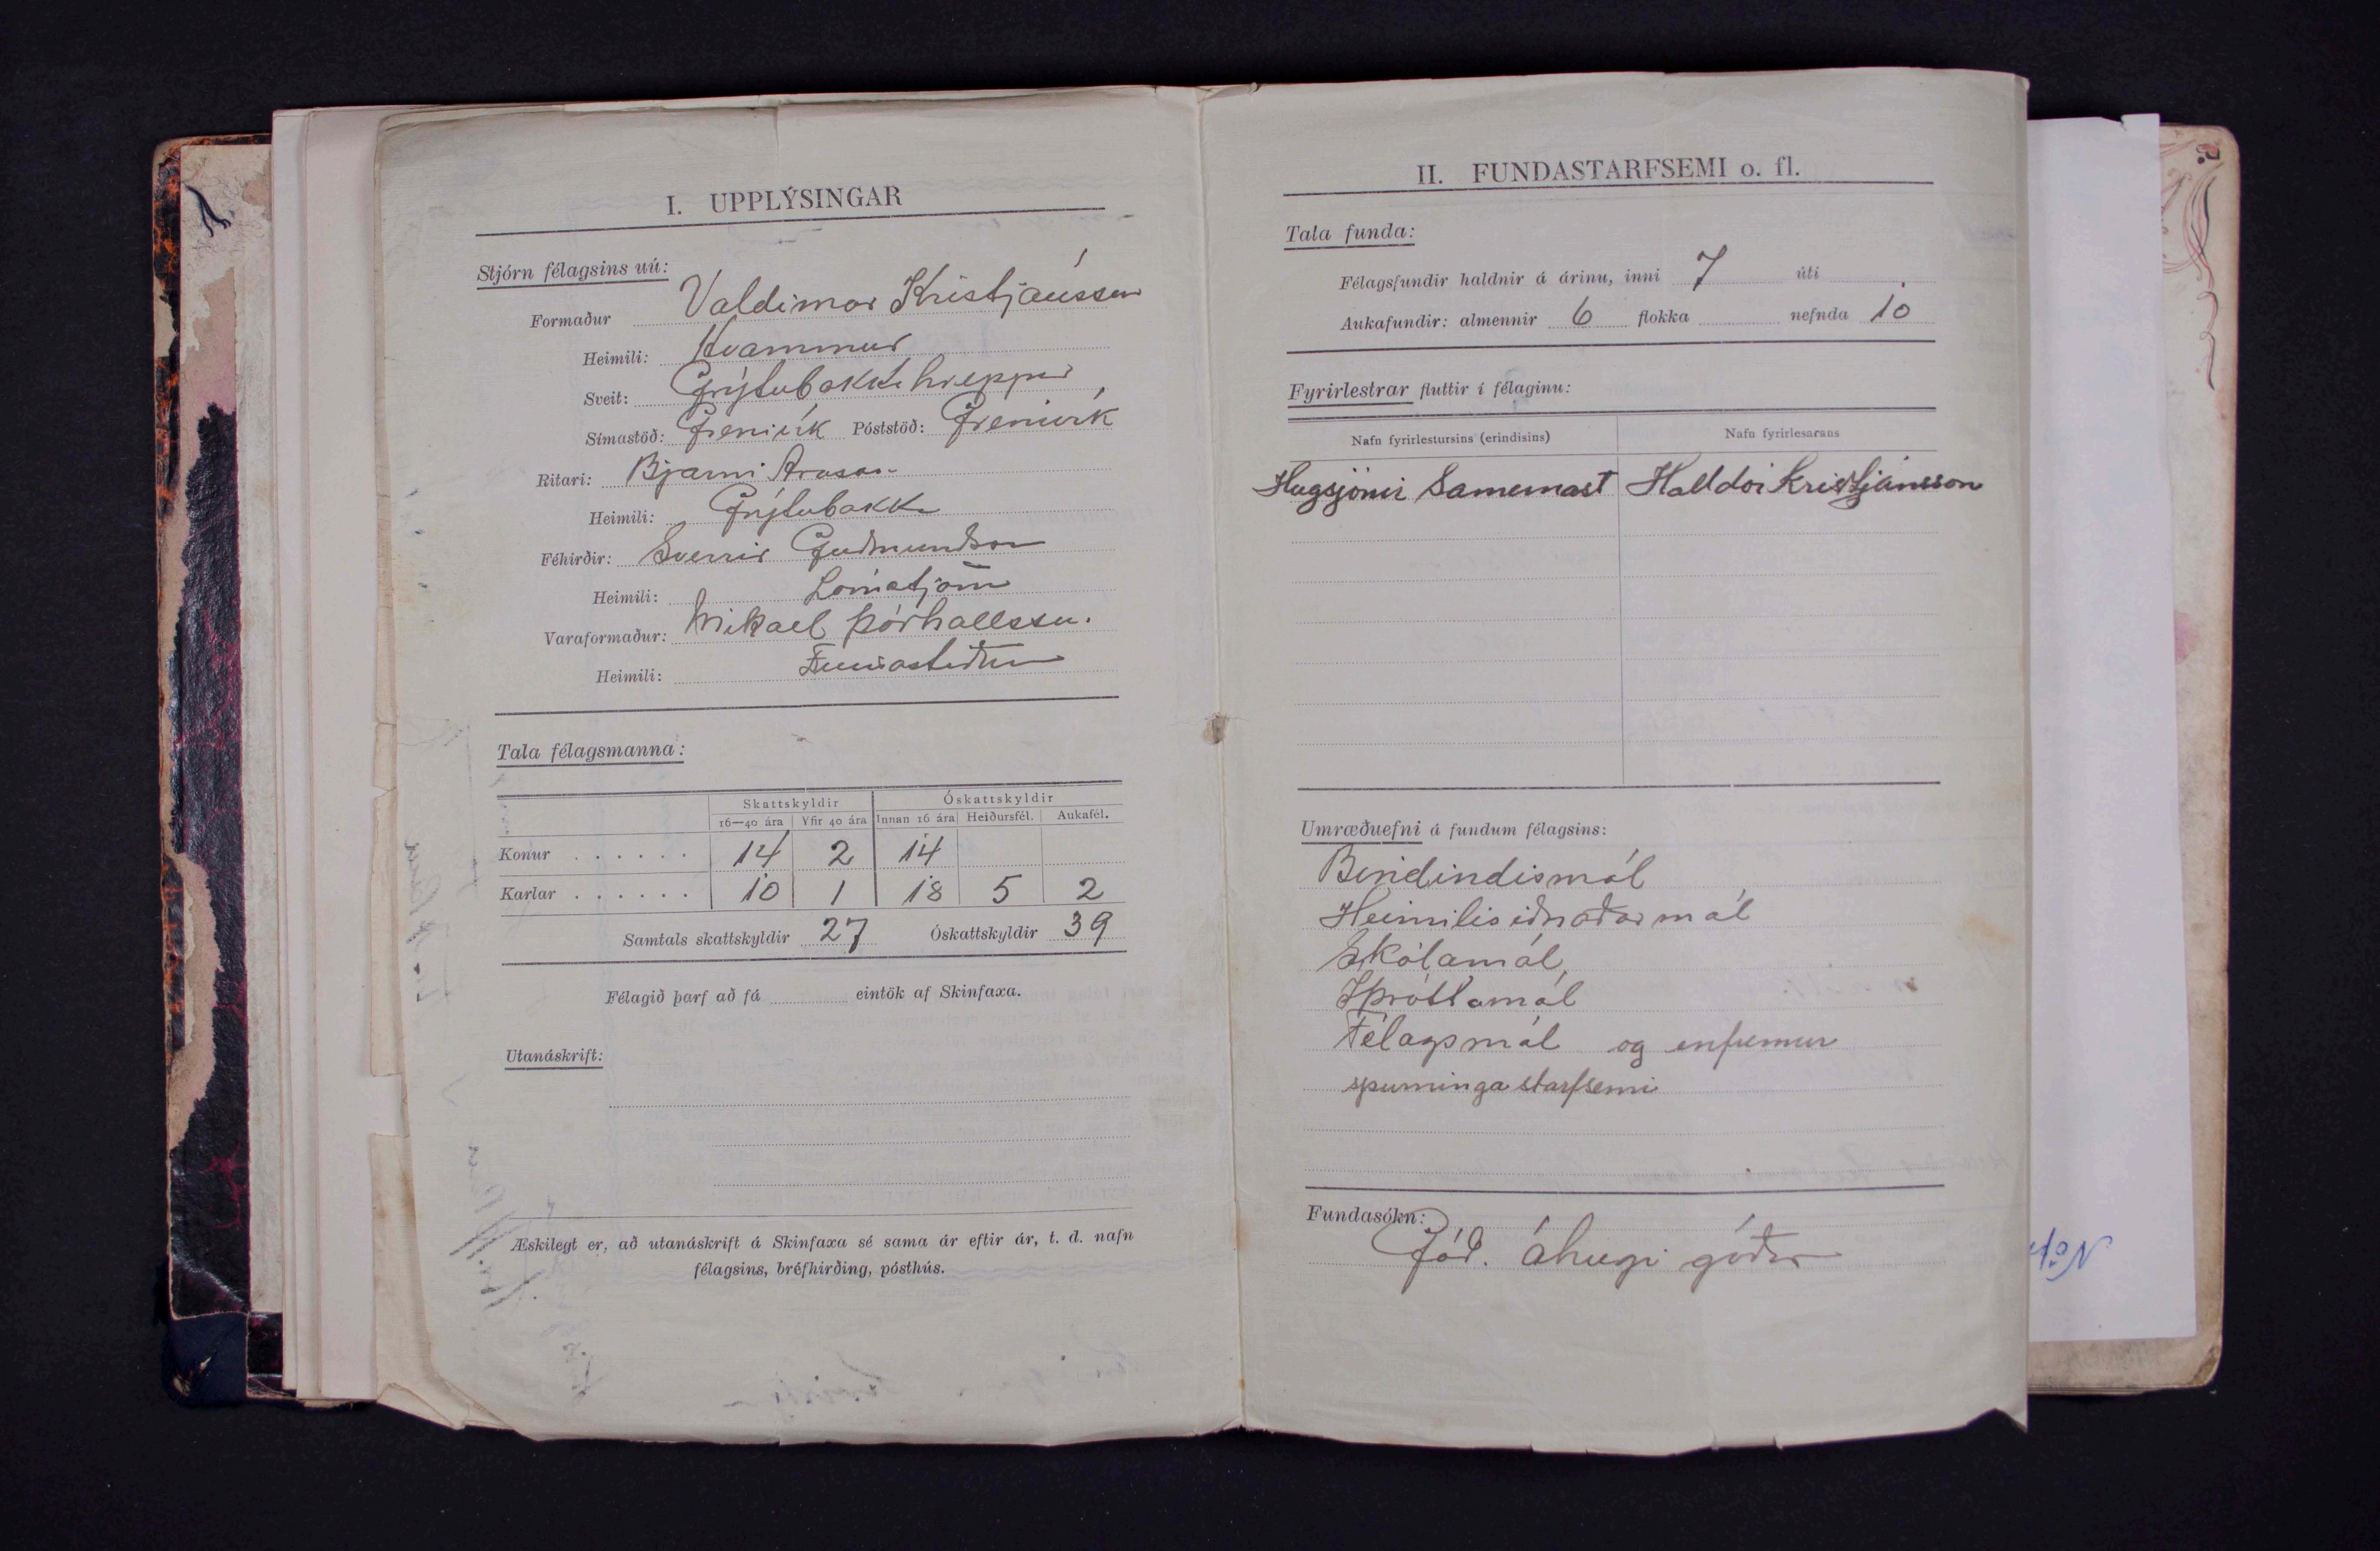 I. UPPLÝSINGAR
Stjórn félagsins nú:
Formaður Valdimar Kristjánsson
Heimili: Hvammur
Sveit: Grýtubakkahreppur
Símastöð: Grenivík Póststöð: Grenivík
Ritari: Bjarni Arason
Heimili: Grýtubakka
Féhirðir: Sverrir Guðmundson
Heimili: Lómatjörn
Varaformaður: Mikael Þórhallsson.
Heimili:
Tala félagsmanna:
Skattskyldir Óskattskyldir
16—40 ára Yfir 40 ára Innan 16 ára Heiðursfél. Aukafél.
Konur . . . . . . 14 2 14
Karlar . . . . . . 10 1 18 5 2
Samtals skattskyldir 27 Óskattskyldir 39
Félagið þarf að fá eintök af Skinfaxa.
Utanáskrift:
Æskilegt er, að utanáskrift á Skinfaxa sé sama ár eftir ár, t. d. nafn
félagsins, bréfhirðing, pósthús.
II. FUNDASTARFSEMI o. fl.
Tala funda:
Félagsfundir haldnir á árinu, inni 7 úti
Aukafundir: almennir 6 flokka nefnda 10
Fyrirlestrar fluttir í félaginu:
Nafn fyrirlestursins (erindisins) Nafn fyrirlesarans
Hugsjónir Sameinast Halldór Kristjánsson
Umræðuefni á fundum félagsins:
Bindindismál
Heimilisiðnaðarmál
Skólamál,
Íþróttamál
Félagsmál og enfremur
spurningastarfsemi
Fundasókn:
Góð. áhugi góður
No